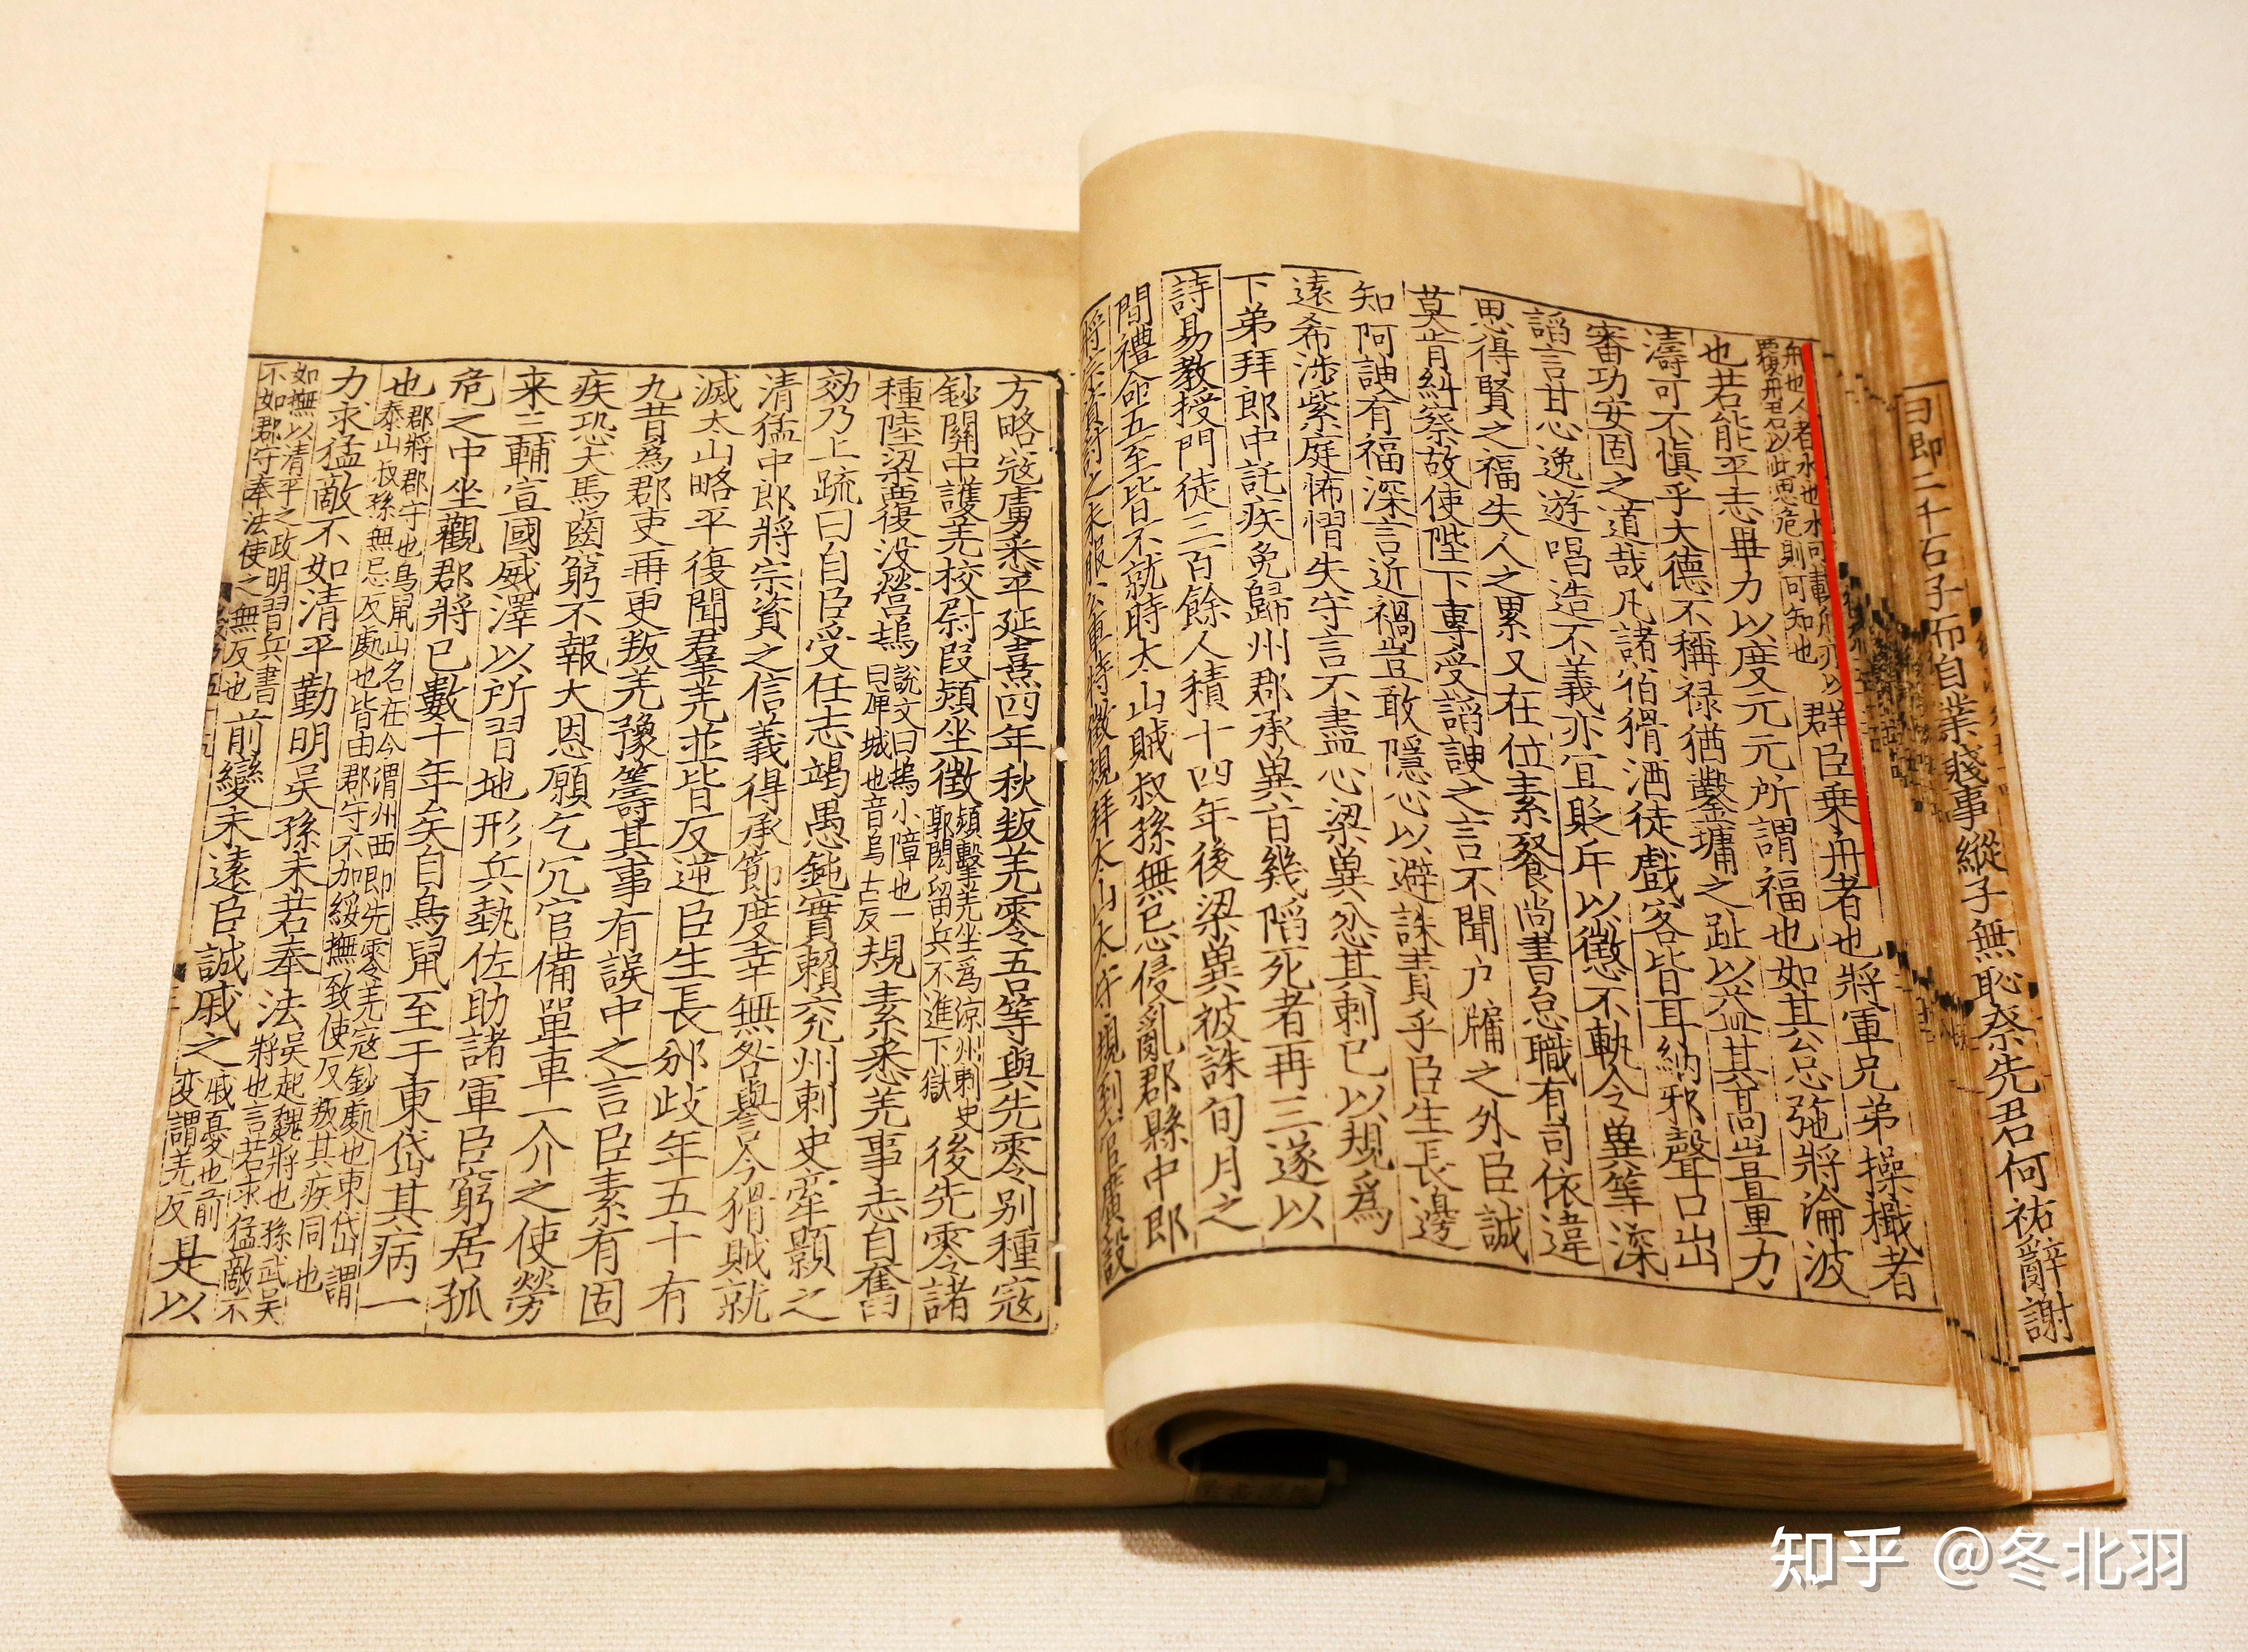 曰郎二千石子而自業賤事縱子無恥奈先君何祐辭謝
舟也人者水也水可載舟亦以
覆舟君以此思危則可知也
群臣乗舟者也將軍兄弟操檝者
也若能平志畢力以度元元所謂福也如其怠弛將淪波
濤可不慎乎夫德不稱禄猶鑿墉之趾以益其高豈量力
審功安固之道哉凡諸宿猾酒徒戲客皆耳納邪聲口出
謟言甘心逸遊唱造不義亦宜貶斥以懲不軌令兾等深
思得賢之福失人之累又在位素餐尚書怠職有司依違
莫肯糾察故使陛下專受謟諛之言不聞户牖之外臣誠
知阿諛有福深言近禍豈敢隱心以避誅責乎臣生長邊
遠希涉紫庭怖慴失守言不盡心梁兾忿其刺己以規爲
下第拜郎中託疾免歸州郡承兾旨幾陷死者再三遂以
詩易教授門徒三百餘人積十四年後梁兾被誅旬月之
間禮命五至皆不就時太山賊叔孫無忌侵亂郡縣中郎
將宗資討之未服公車特徵規拜太山太守規到官廣設
方略寇虜悉平延熹四年秋叛羌零吾等與先零别種寇
鈔關中護羌校尉段熲坐徵
熲擊羌坐爲涼州刺史
郭閎留兵不進下獄
後先零諸
種陸梁覆没營塢
說文曰塢小障也一
曰庳城也音烏古反
規素悉羌事志自奮
効乃上疏曰自臣受任志竭愚鈍實賴兖州刺史牽顥之
清猛中郎將宗資之信義得承節度幸無咎譽今猾賊就
滅太山略平復聞羣羌並皆反逆臣生長邠岐年五十有
九昔爲郡吏再更叛羌豫籌其事有誤中之言臣素有固
疾恐犬馬齒窮不報大恩願乞冗官備單車一介之使勞
来三輔宣國威澤以所習地形兵埶佐助諸軍臣窮居孤
危之中坐觀郡將已數十年矣自鳥鼠至于東岱其病一
也
郡將郡守也鳥鼠山名在今渭州西即先零羌寇鈔處也東岱謂
泰山叔孫無忌反處也皆由郡守不加綏撫致使反叛其疾同也
力求猛敵不如清平勤明吴孫未若奉法
吴起魏將也孫武吴
將也言若求猛敵不
如撫以清平之政明習兵書
不如郡守奉法使之無反也
前變未遠臣誠戚之
戚憂也前
変謂羌反
是以
知乎 @冬北羽